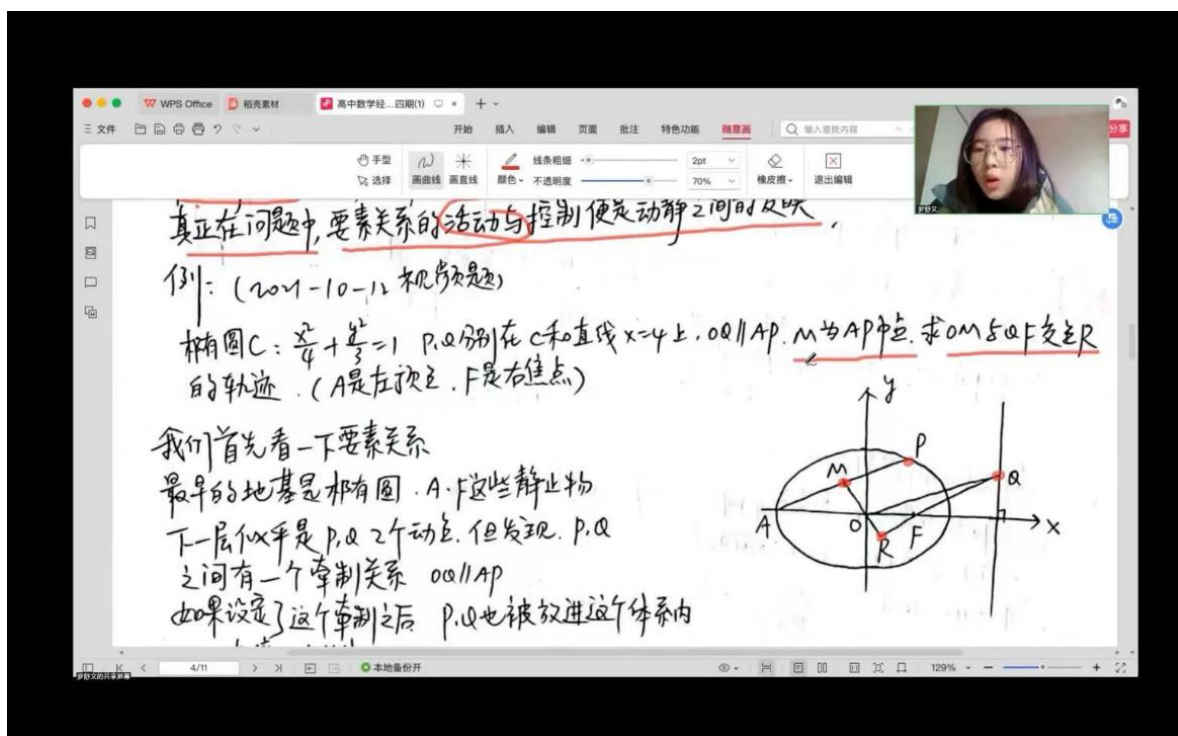 WPS Office 稻壳素材 高中数学经...四期(1)
三 文件 开始 插入 编辑 页面 批注 特色功能 随意画 输入查找内容 分享
手型 画曲线 画直线 颜色 线条粗细 2pt 橡皮擦 退出编辑
选择 不透明度 70%
罗舒文
真正在问题中,要素关系的活动与控制便是动静之间的反映.
例:(2021-10-12 视频题)
椭圆C: x²/4 + y²/3 = 1 P,Q分别在C和直线x=4上,OQ∥AP.M为AP中点.求OM与QF交点R
的轨迹.(A是左顶点.F是右焦点)
我们首先看一下要素关系
最早的地基是椭圆.A.F这些静止物
下一层似乎是P,Q 2个动点.但发现.P,Q
之间有一个牵制关系 OQ∥AP
如果设定了这个牵制之后 P,Q也被放进这个体系内
y
P
M
Q
A
O
F
R
x
4/11 本地备份开 129%
罗舒文的共享屏幕